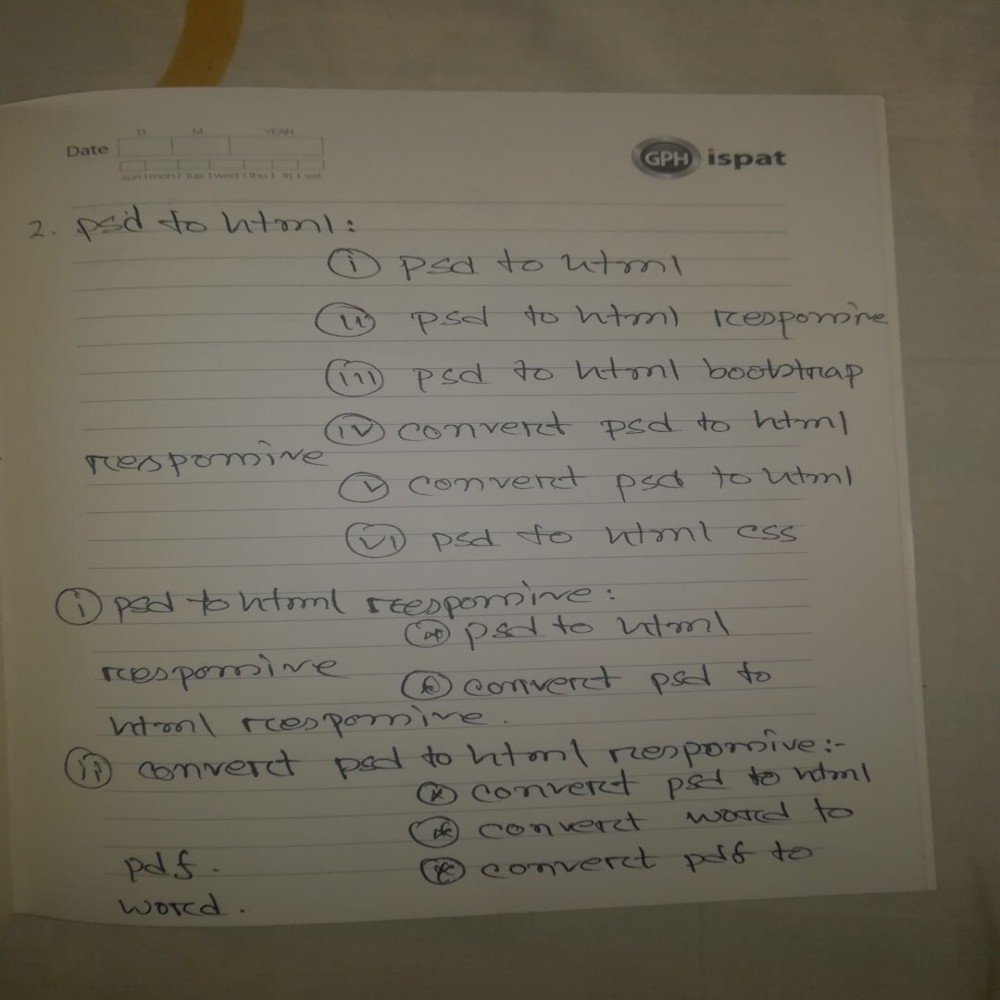 D M YEAR
Date
sun mon tue wed thu fri sat
GPH ispat
2. psd to html:
(i) psd to html
(ii) psd to html responsive
(iii) psd to html bootstrap
(iv) convert psd to html
responsive
(v) convert psd to html
(vi) psd to html css
(i) psd to html responsive:
(*) psd to html
responsive
(*) convert psd to
html responsive.
(ii) convert psd to html responsive:-
(*) convert psd to html
(*) convert word to
pdf.
(*) convert pdf to
word.